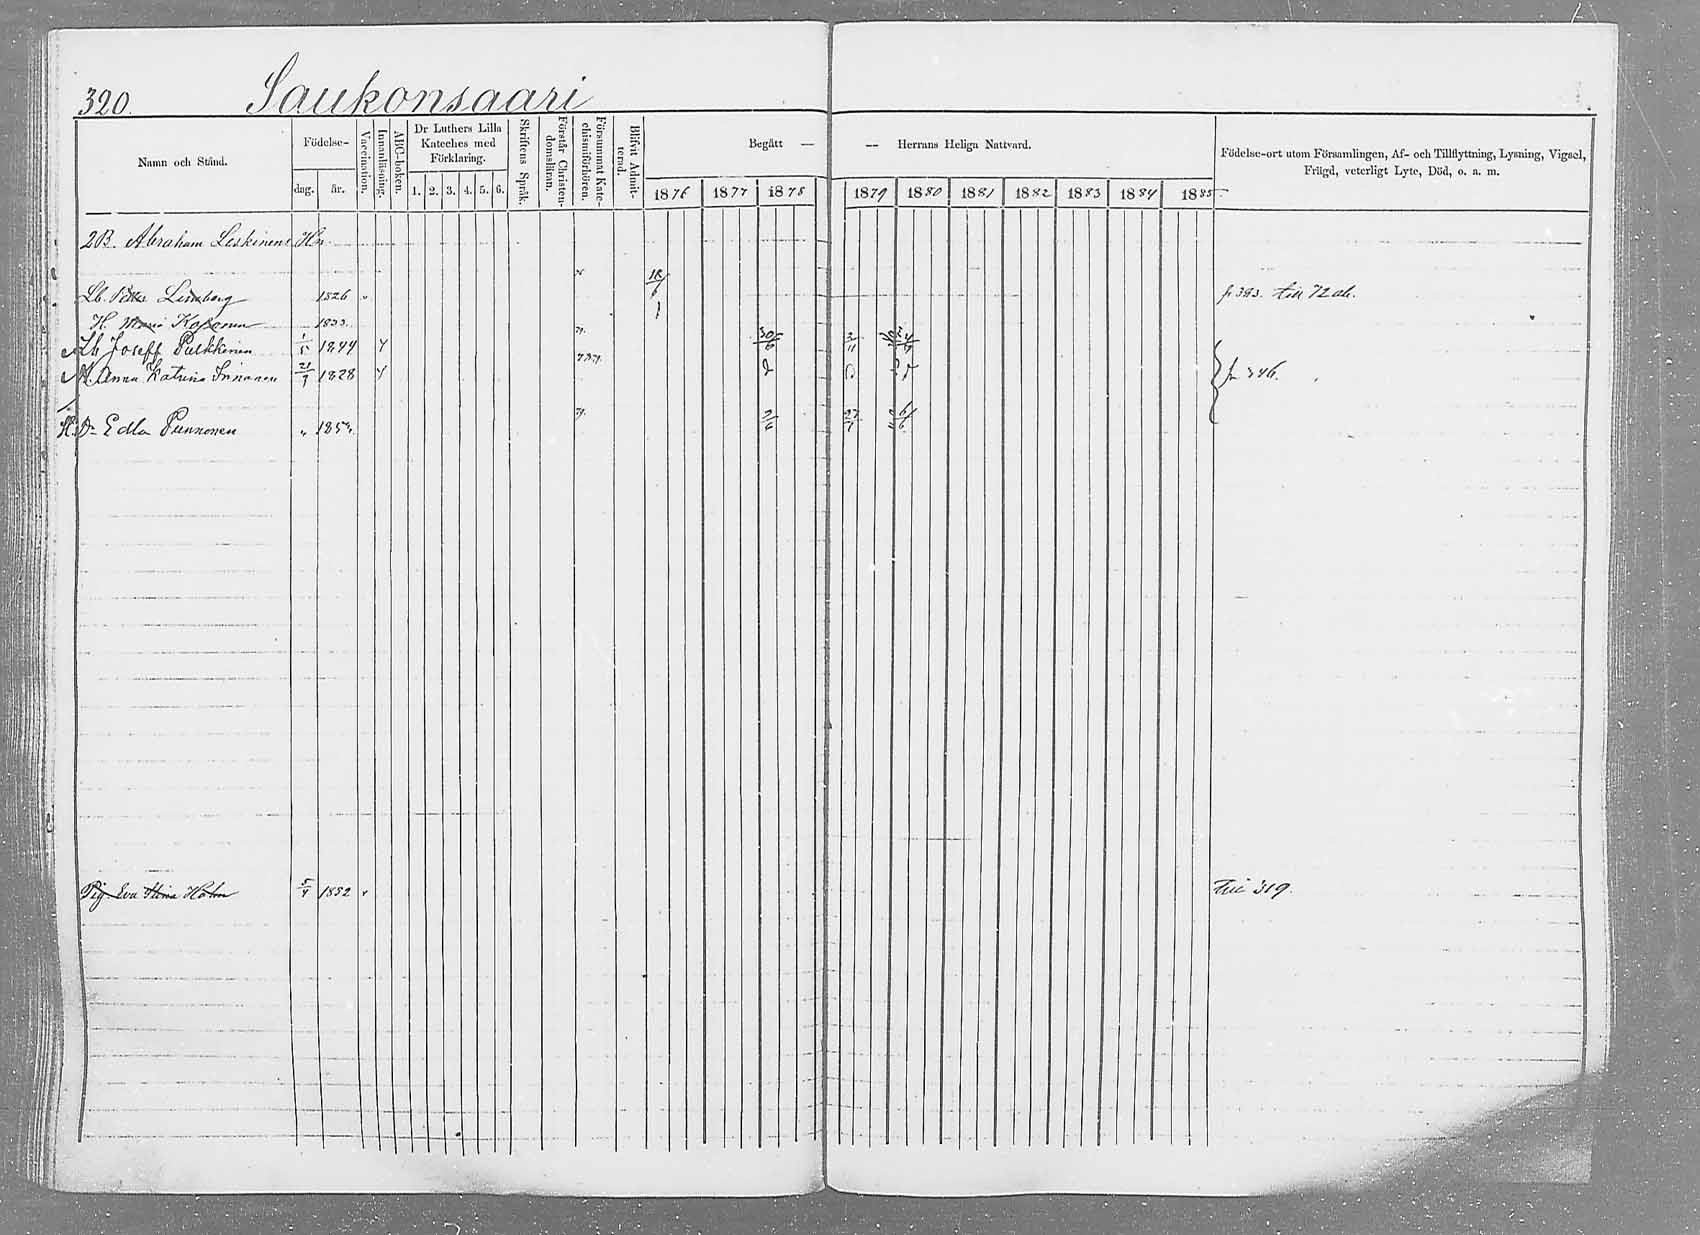 320. Saukonsaari
Namn och Stånd.
Födelse-
dag. år.
Vaccination.
Innanläsning.
ABC-boken.
Dr Luthers Lilla Kateches med Förklaring.
1. 2. 3. 4. 5. 6.
Skriftens Språk.
Förstår Christendomsläran.
Försummat Katechismiförhören.
Blifvit Admitterad.
Begått — — Herrans Heliga Nattvard.
1876 1877 1878 1879 1880 1881 1882 1883 1884 1885
Födelse-ort utom Församlingen, Af- och Tillflyttning, Lysning, Vigsel,
Frägd, veterligt Lyte, Död, o. a. m.
2B. Abraham Leskinens Hn.
Lb. Petter 1826 18/6 fr 383. till 72 ab.
H. Maria Kosonen 1833
Lb Joseff Pulkkinen 1/5 1844
H. Anna Katrina Innanen 21/9 1828 fr 346.
Edla Punnonen
Pig. Eva Stina 5/4 1852 till 319.